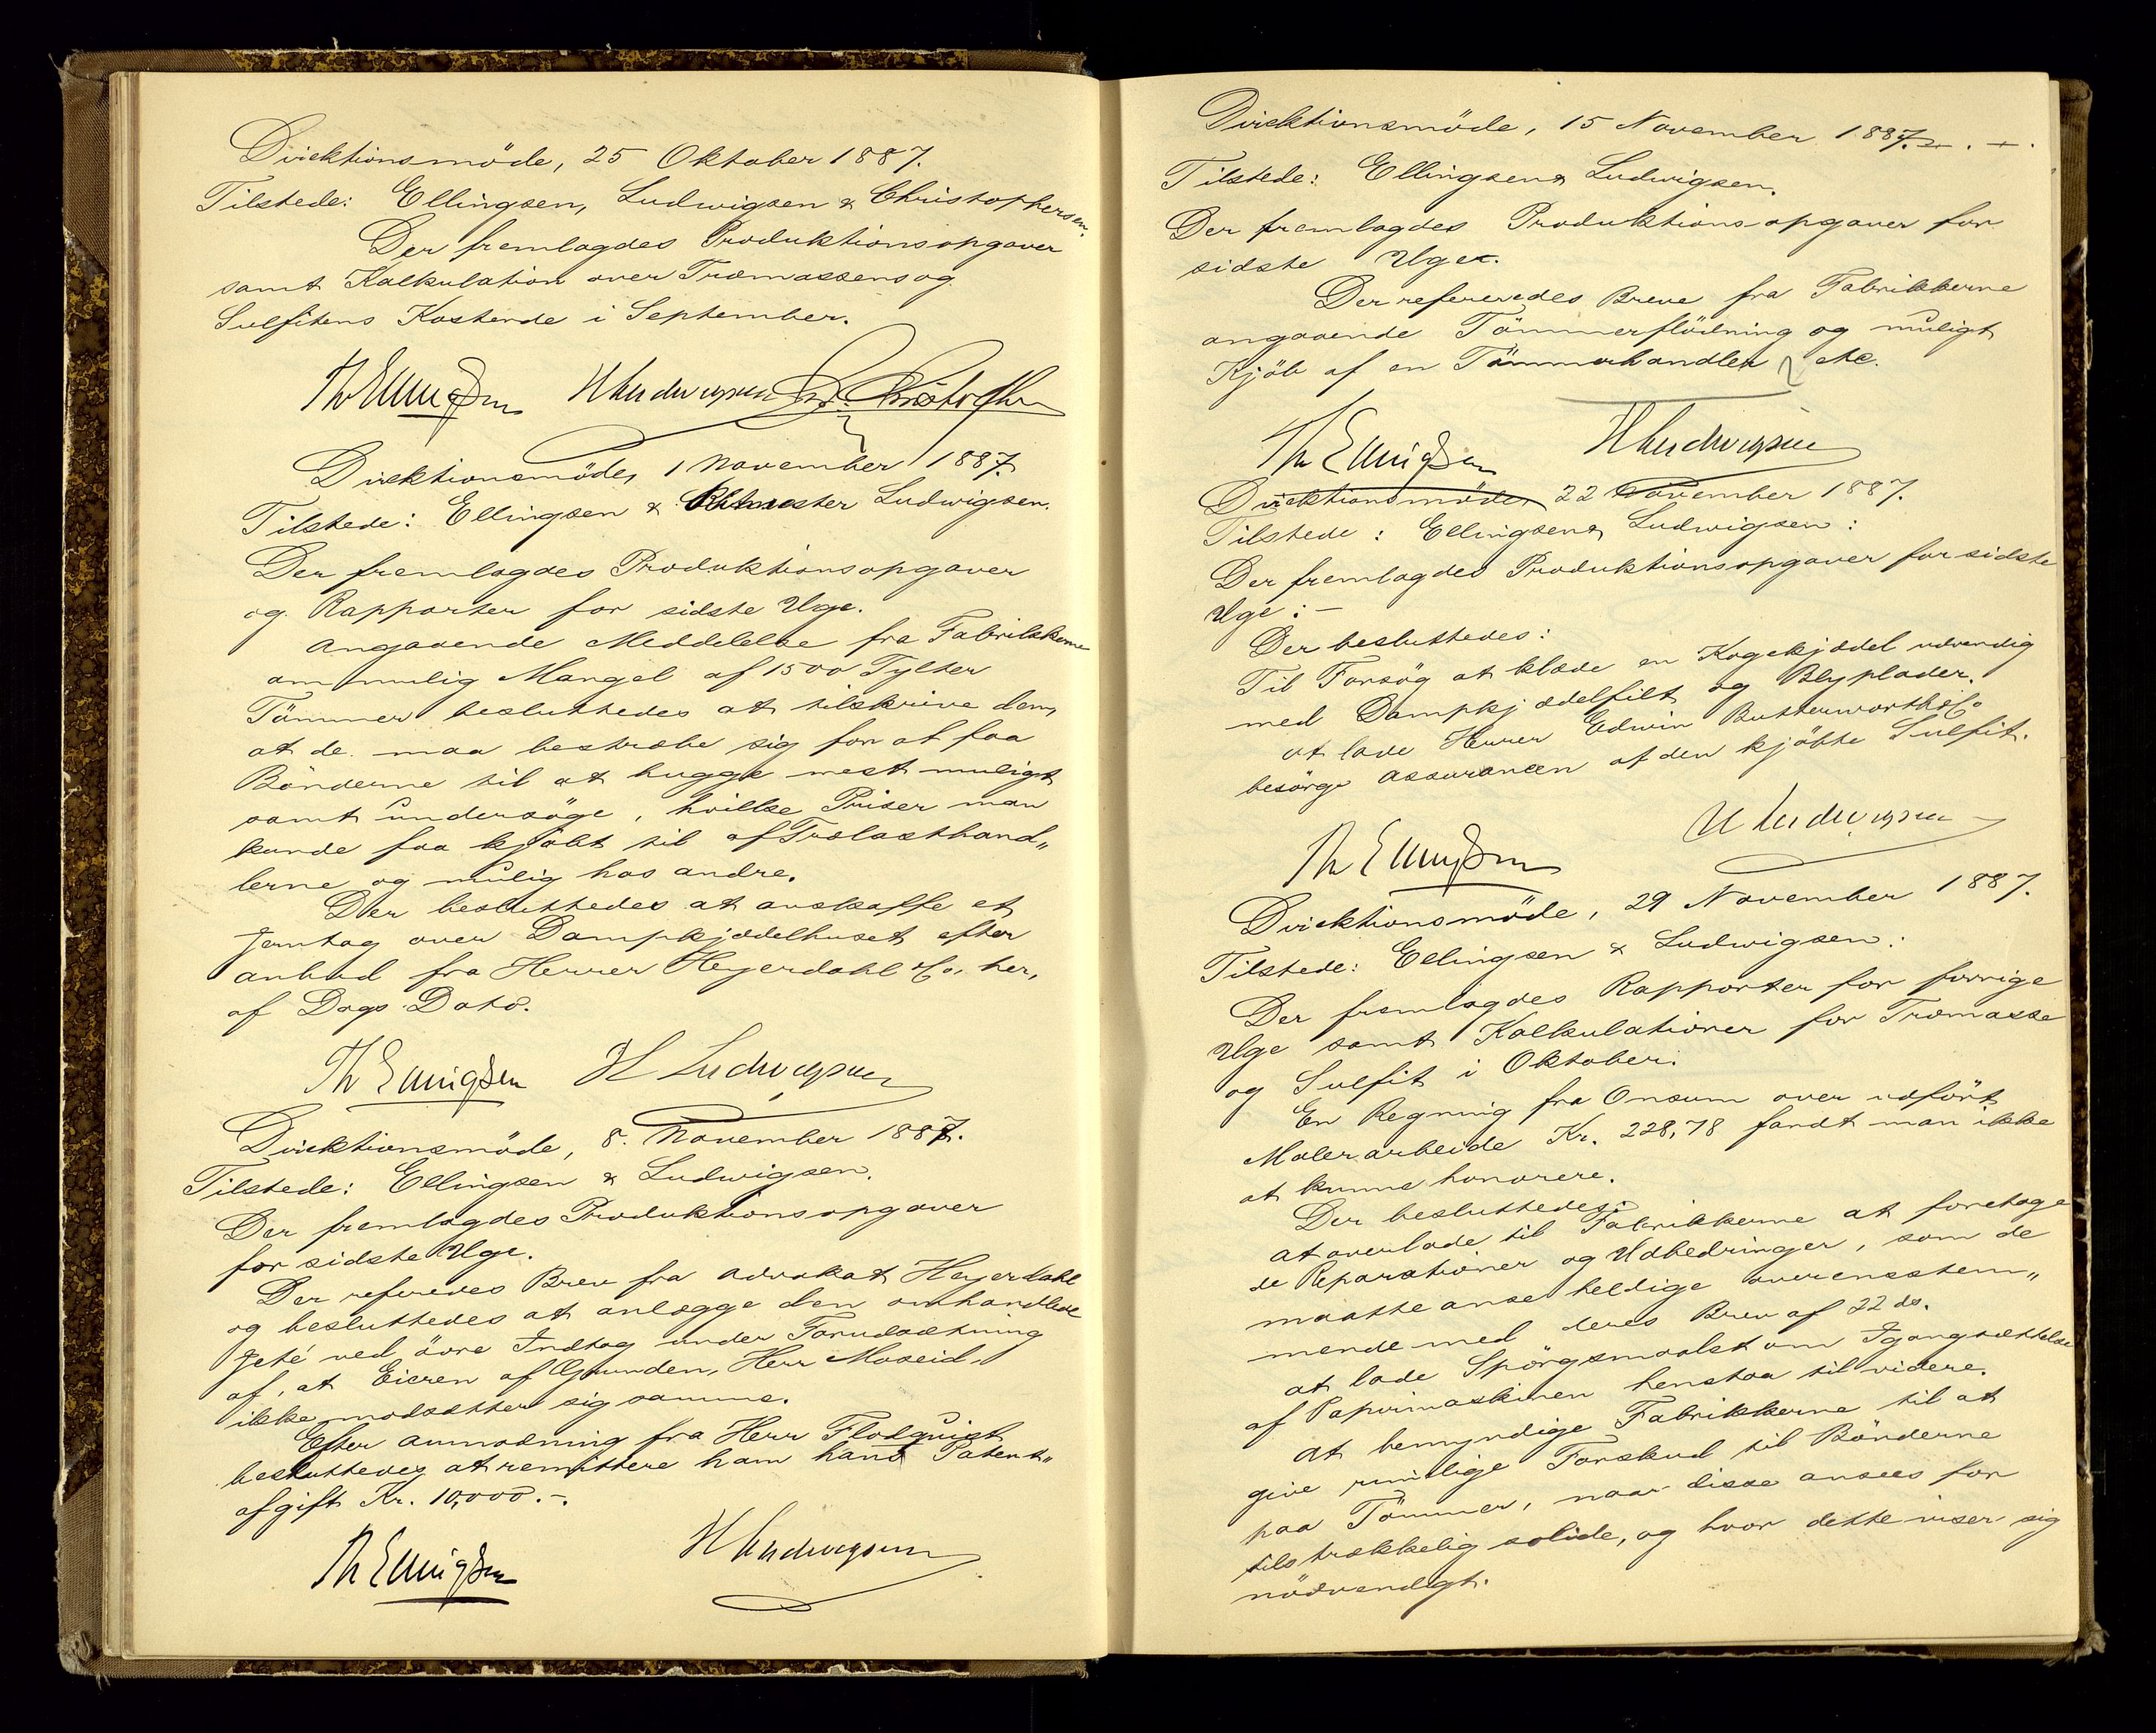 Direktionsmöde, 25 Oktober 1887.
Tilstede: Ellingsen, Ludwigsen & Christophersen.
Der fremlagdes Produktionsopgaver
samt Kalkulation over Træmassens og
Sulfitens Kostende i September.
Th Ellingsen H Ludwigsen Christophersen
Direktionsmöde, 1 November 1887.
Tilstede: Ellingsen & Ludwigsen.
Der fremlagdes Produktionsopgaver
og Rapporter for sidste Uge.
Angaaende Meddelelse fra Fabrikkerne
om mulig Mangel af 1500 Tylter
Tömmer besluttedes at tilskrive dem,
at de maa bestræbe sig for at faa
Bönderne til at hugge mest muligt
samt undersöge, hvilke Priser man
kunde faa kjöbt til af Trælasthand„
lerne og mulig hos andre.
Der besluttedes at anskaffe et
Jerntag over Dampkjedelhuset efter
anbud fra Herrer Heyerdahl & Co, her,
af Dags Dato.
Th Ellingsen H Ludwigsen
Direktionsmöde, 8. November 1887.
Tilstede: Ellingsen & Ludwigsen.
Der fremlagdes Produktionsopgaver
for sidste Uge.
Der referedes Brev fra Advokat Heyerdahl
og besluttedes at anlægge den omhandlede
Jeté ved övre Indtag under Forudsætning
af, at Eieren af Grunden, Herr Moseid,
ikke modsætter sig samme.
Efter anmodning fra Herr Flodquist
besluttedes at remittere ham hans Patent„
afgift Kr. 10,000.-.
Th Ellingsen H Ludwigsen
Direktionsmöde, 15 November 1887.
Tilstede: Ellingsen & Ludwigsen.
Der fremlagdes Produktionsopgaver for
sidste Uge.
Der refereredes Breve fra Fabrikkerne
angaaende Tömmerflödning og muligt
Kjöb af en Tömmerhandler etc.
Th Ellingsen H Ludwigsen
Direktionsmöde, 22 November 1887.
Tilstede: Ellingsen & Ludwigsen:
Der fremlagdes Produktionsopgaver for sidste
Uge:-
Der besluttedes:
Til Forsög at klæde en Kogekjedel udvendig
med Dampkjedelfilt og Blyplader.
at lade Herrer Edwin Butterworth & Co
besörge Assurancen af den kjöbte Sulfit.
H Ludwigsen
Th Ellingsen
Direktionsmöde, 29 November 1887.
Tilstede: Ellingsen & Ludwigsen:
Der fremlagdes Rapporter for forrige
Uge samt Kalkulationer for Træmasse
og Sulfit i Oktober.
En Regning fra Onsum over udfört
Malerarbeide Kr. 228,78 fandt man ikke
at kunne honorere.
Der besluttedes:
at overlade til Fabrikkerne at foretage
de Reparationer og Udbedringer, som de
maatte anse heldige overensstem„
mende med deres Brev af 22 ds.
at lade Spörgsmaalet om Igangsættelse
af Papirmaskinen henstaa til videre.
at bemyndige Fabrikkerne til at
give rimelige Forskud til Bönderne
paa Tömmer, naar disse ansees for
tilstrækkelig solide, og hvor dette viser sig
nödvendigt.